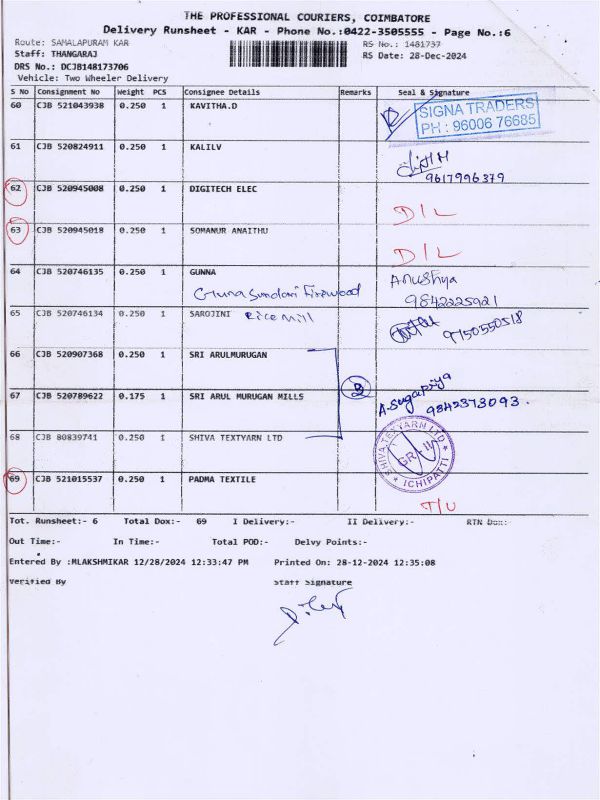 THE PROFESSIONAL COURIERS, COIMBATORE
Delivery Runsheet - KAR - Phone No.:0422-3505555 - Page No.:6
Route: SAMALAPURAM KAR
RS No.: 1481737
Staff: THANGARAJ
RS Date: 28-Dec-2024
DRS No.: DCJB148173706
Vehicle: Two Wheeler Delivery
S No Consignment No Weight PCS Consignee Details Remarks Seal & Signature
60 CJB 521043938 0.250 1 KAVITHA.D
SIGNA TRADERS
PH : 96006 76685
61 CJB 520824911 0.250 1 KALILV
9617996379
62 CJB 520945008 0.250 1 DIGITECH ELEC
D/L
63 CJB 520945018 0.250 1 SOMANUR ANAITHU
D/L
64 CJB 520746135 0.250 1 GUNNA Anushya
Guna Sundari Firewood 9842225921
65 CJB 520746134 0.250 1 SAROJINI Rice Mill 9750550518
66 CJB 520907368 0.250 1 SRI ARULMURUGAN
67 CJB 520789622 0.175 1 SRI ARUL MURUGAN MILLS A-Sugapriya
9842373093.
68 CJB 80839741 0.250 1 SHIVA TEXTYARN LTD
SHIVA TEXTYARN LTD
GR-II
ICHIPATTI
69 CJB 521015537 0.250 1 PADMA TEXTILE
T/U
Tot. Runsheet:- 6 Total Dox:- 69 I Delivery:- II Delivery:- RTN Dox:-
Out Time:- In Time:- Total POD:- Delvy Points:-
Entered By :MLAKSHMIKAR 12/28/2024 12:33:47 PM Printed On: 28-12-2024 12:35:08
Verified By Staff Signature